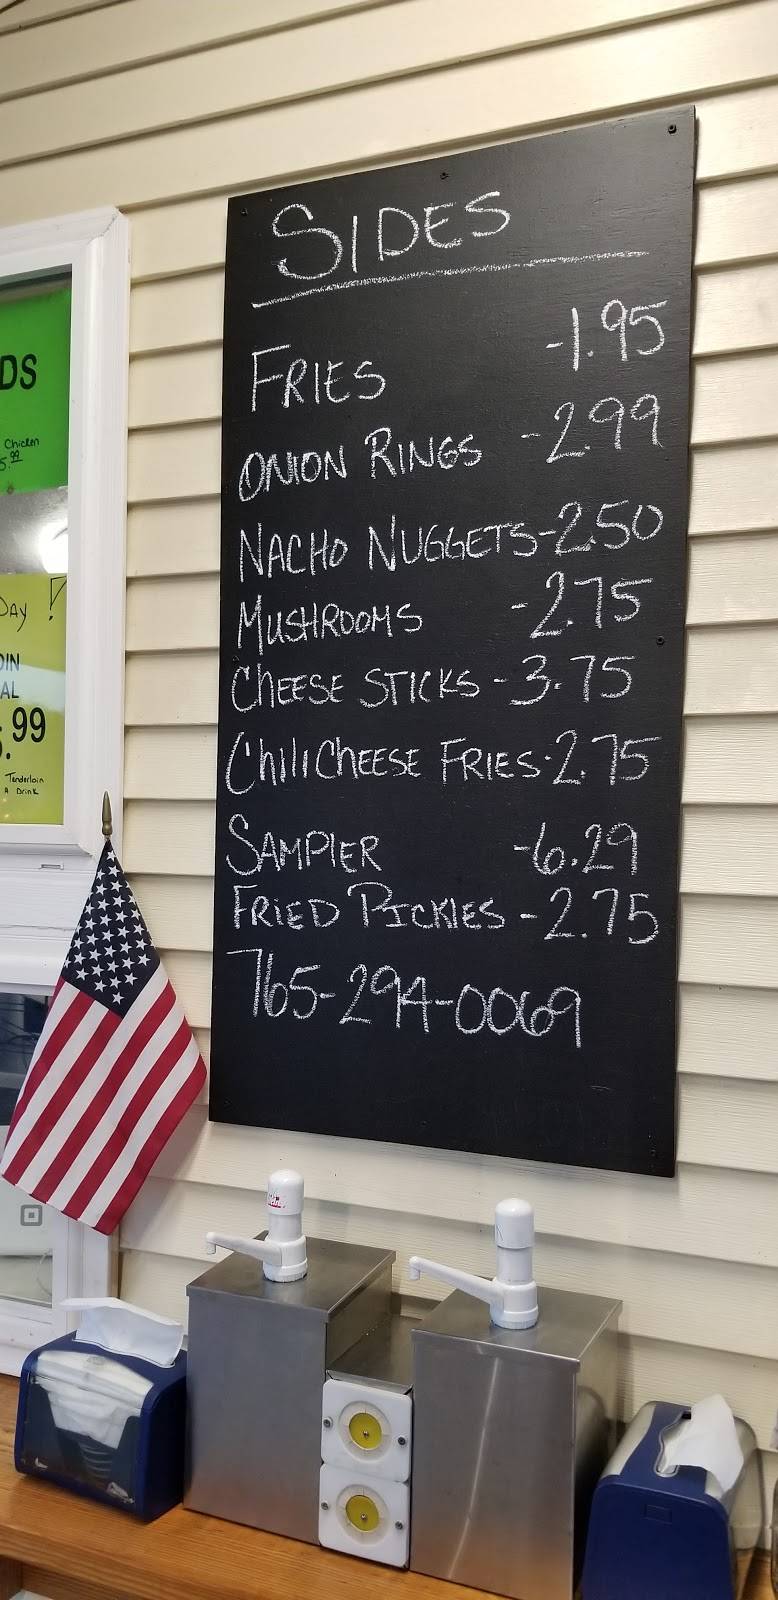 SIDES
FRIES -1.95
ONION RINGS -2.99
NACHO NUGGETS-2.50
MUSHROOMS -2.75
CHEESE STICKS -3.75
Chili CHEESE FRIES-2.75
SAMPLER -6.29
FRIED PICKLES -2.75
765-294-0069
DS
Chicken
5.99
DAY !
OIN
AL
.99
Tenderloin
& Drink